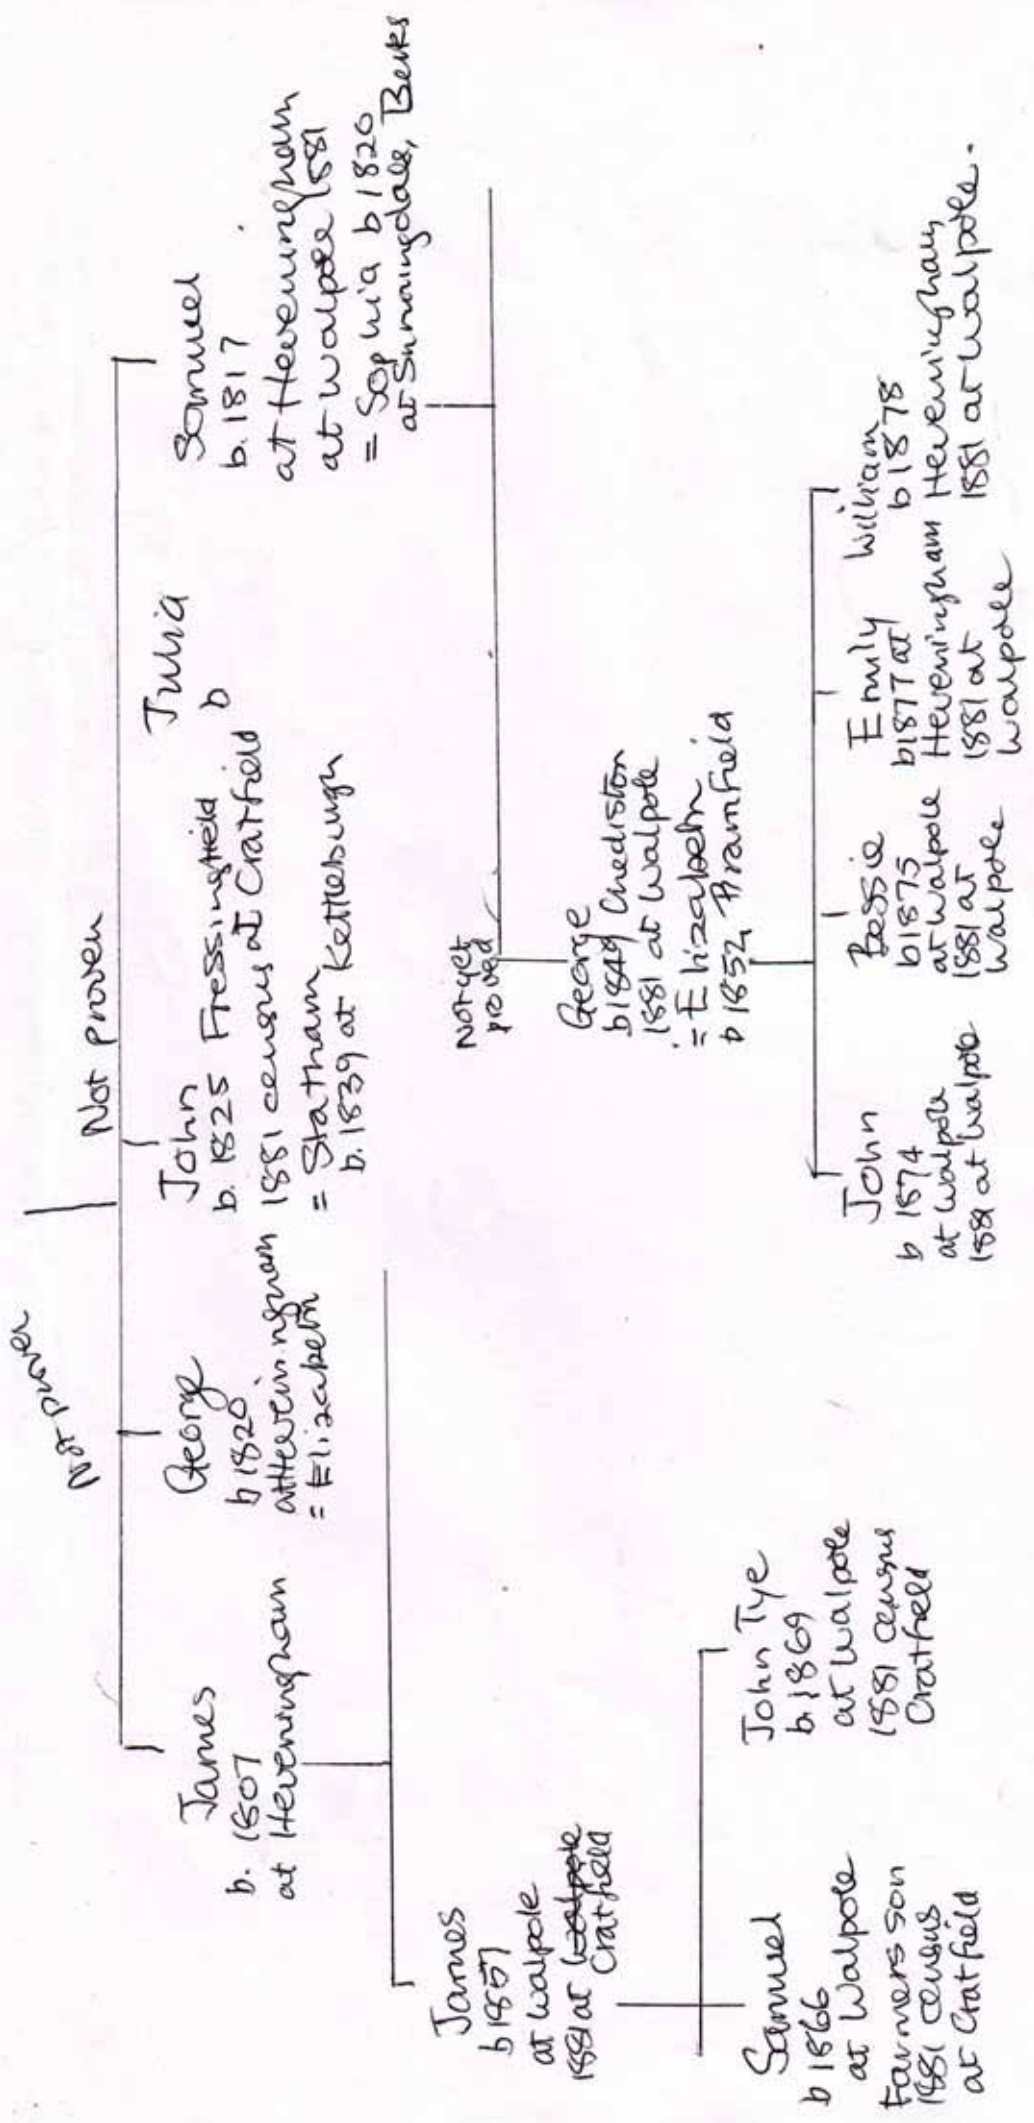 Not proven
Not proven
James
b. 1807
at Heveningham
George
b 1820
at Heveningham
= Elizabeth
John
b. 1825 Fressingfield
1881 census at Cratfield
= Statham
b. 1839 at Kettleburgh
Julia
b
Samuel
b. 1817
at Heveningham
at Walpole 1881
= Sophia b 1820
at Sunningdale, Berks
James
b 1857
at Walpole
1881 at Walpole
Cratfield
Not yet
proved
George
b 1849 Chediston
1881 at Walpole
= Elizabeth
b 1852 Bramfield
Samuel
b 1866
at Walpole
Farmers son
1881 census
at Cratfield
John Tye
b. 1869
at Walpole
1881 census
Cratfield
John
b 1874
at Walpole
1881 at Walpole
Bessie
b 1875
at Walpole
1881 at
Walpole
Emily
b 1877 at
Heveningham
1881 at
Walpole
William
b 1878
Heveningham
1881 at Walpole.